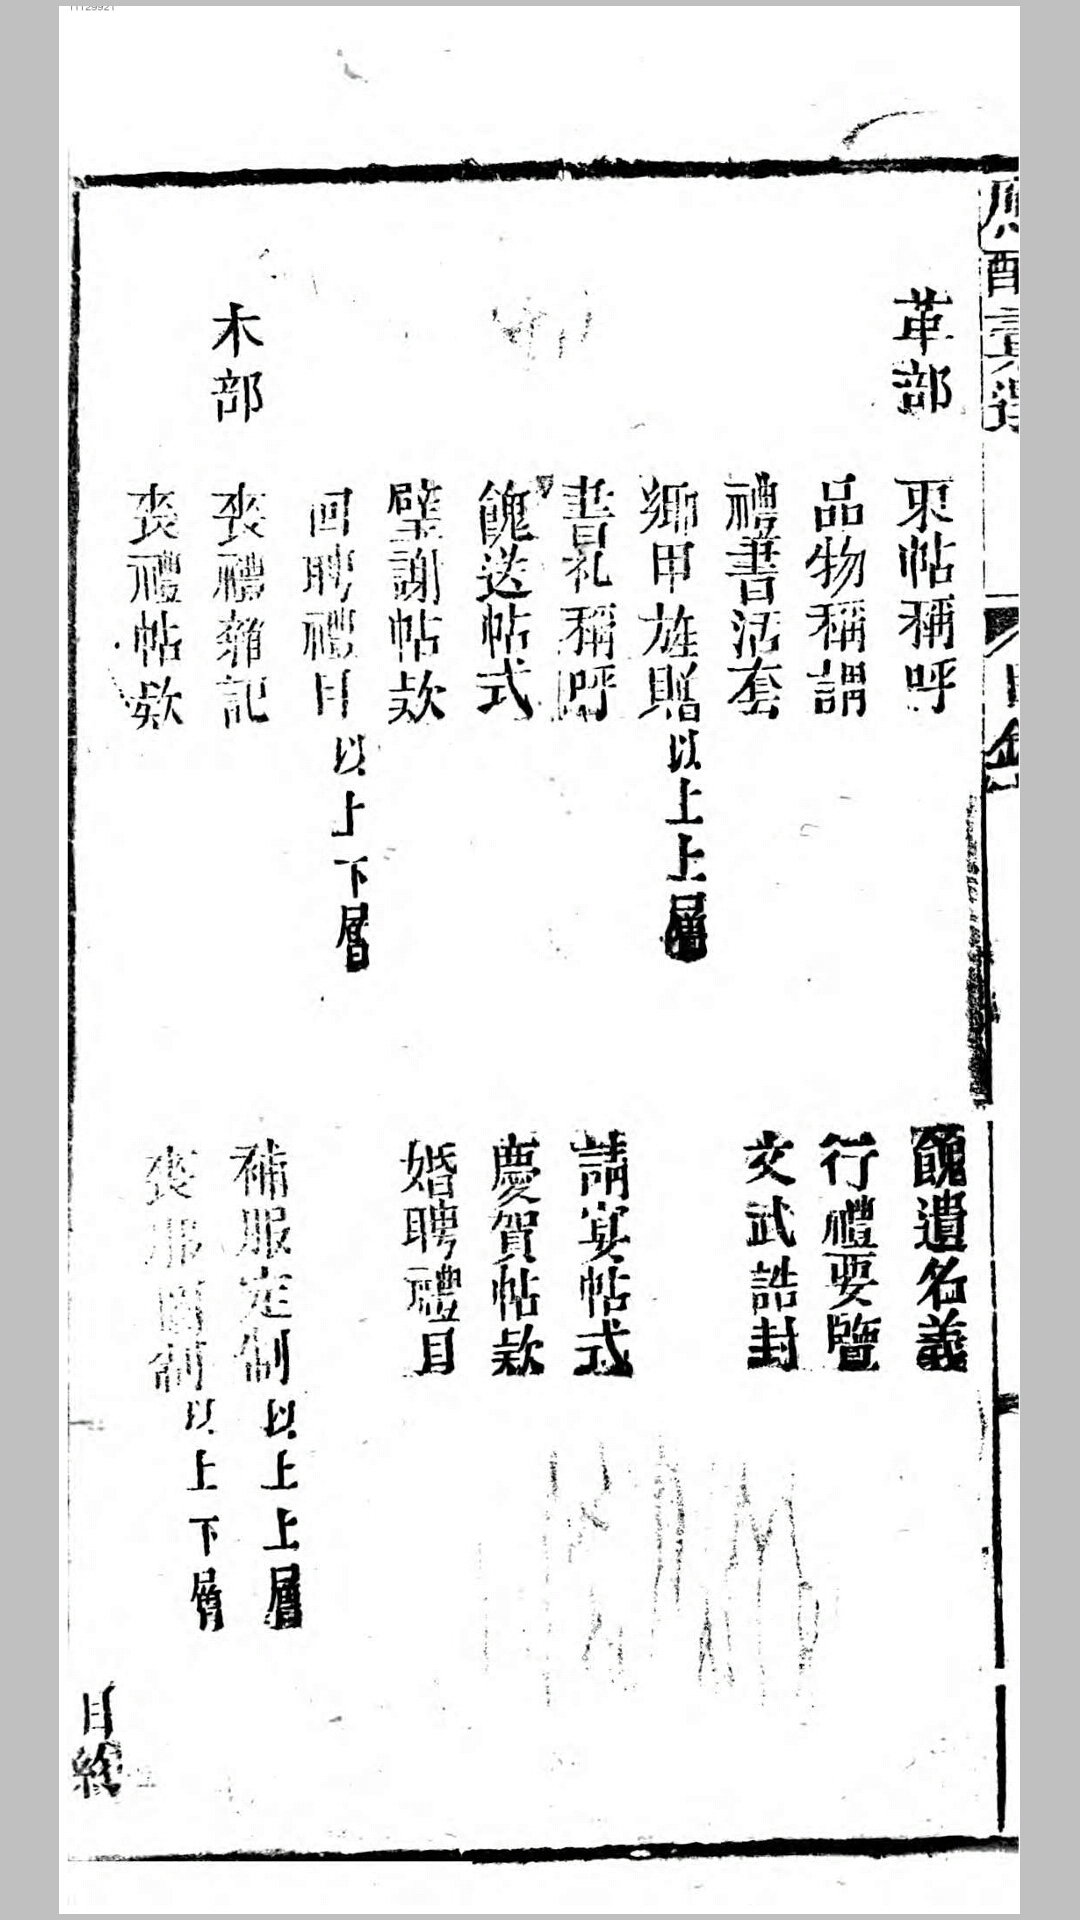 革部
柬帖稱呼
餽遺名義
品物稱謂
行禮要覽
禮書活套
文武誥封
鄉甲旌贈以上上層
書札稱呼
請宴帖式
餽送帖式
慶賀帖款
璧謝帖款
婚聘禮目
回聘禮目以上下層
木部
喪禮雜記
補服定制以上上層
喪禮帖款
喪服圖制以上下層
目終